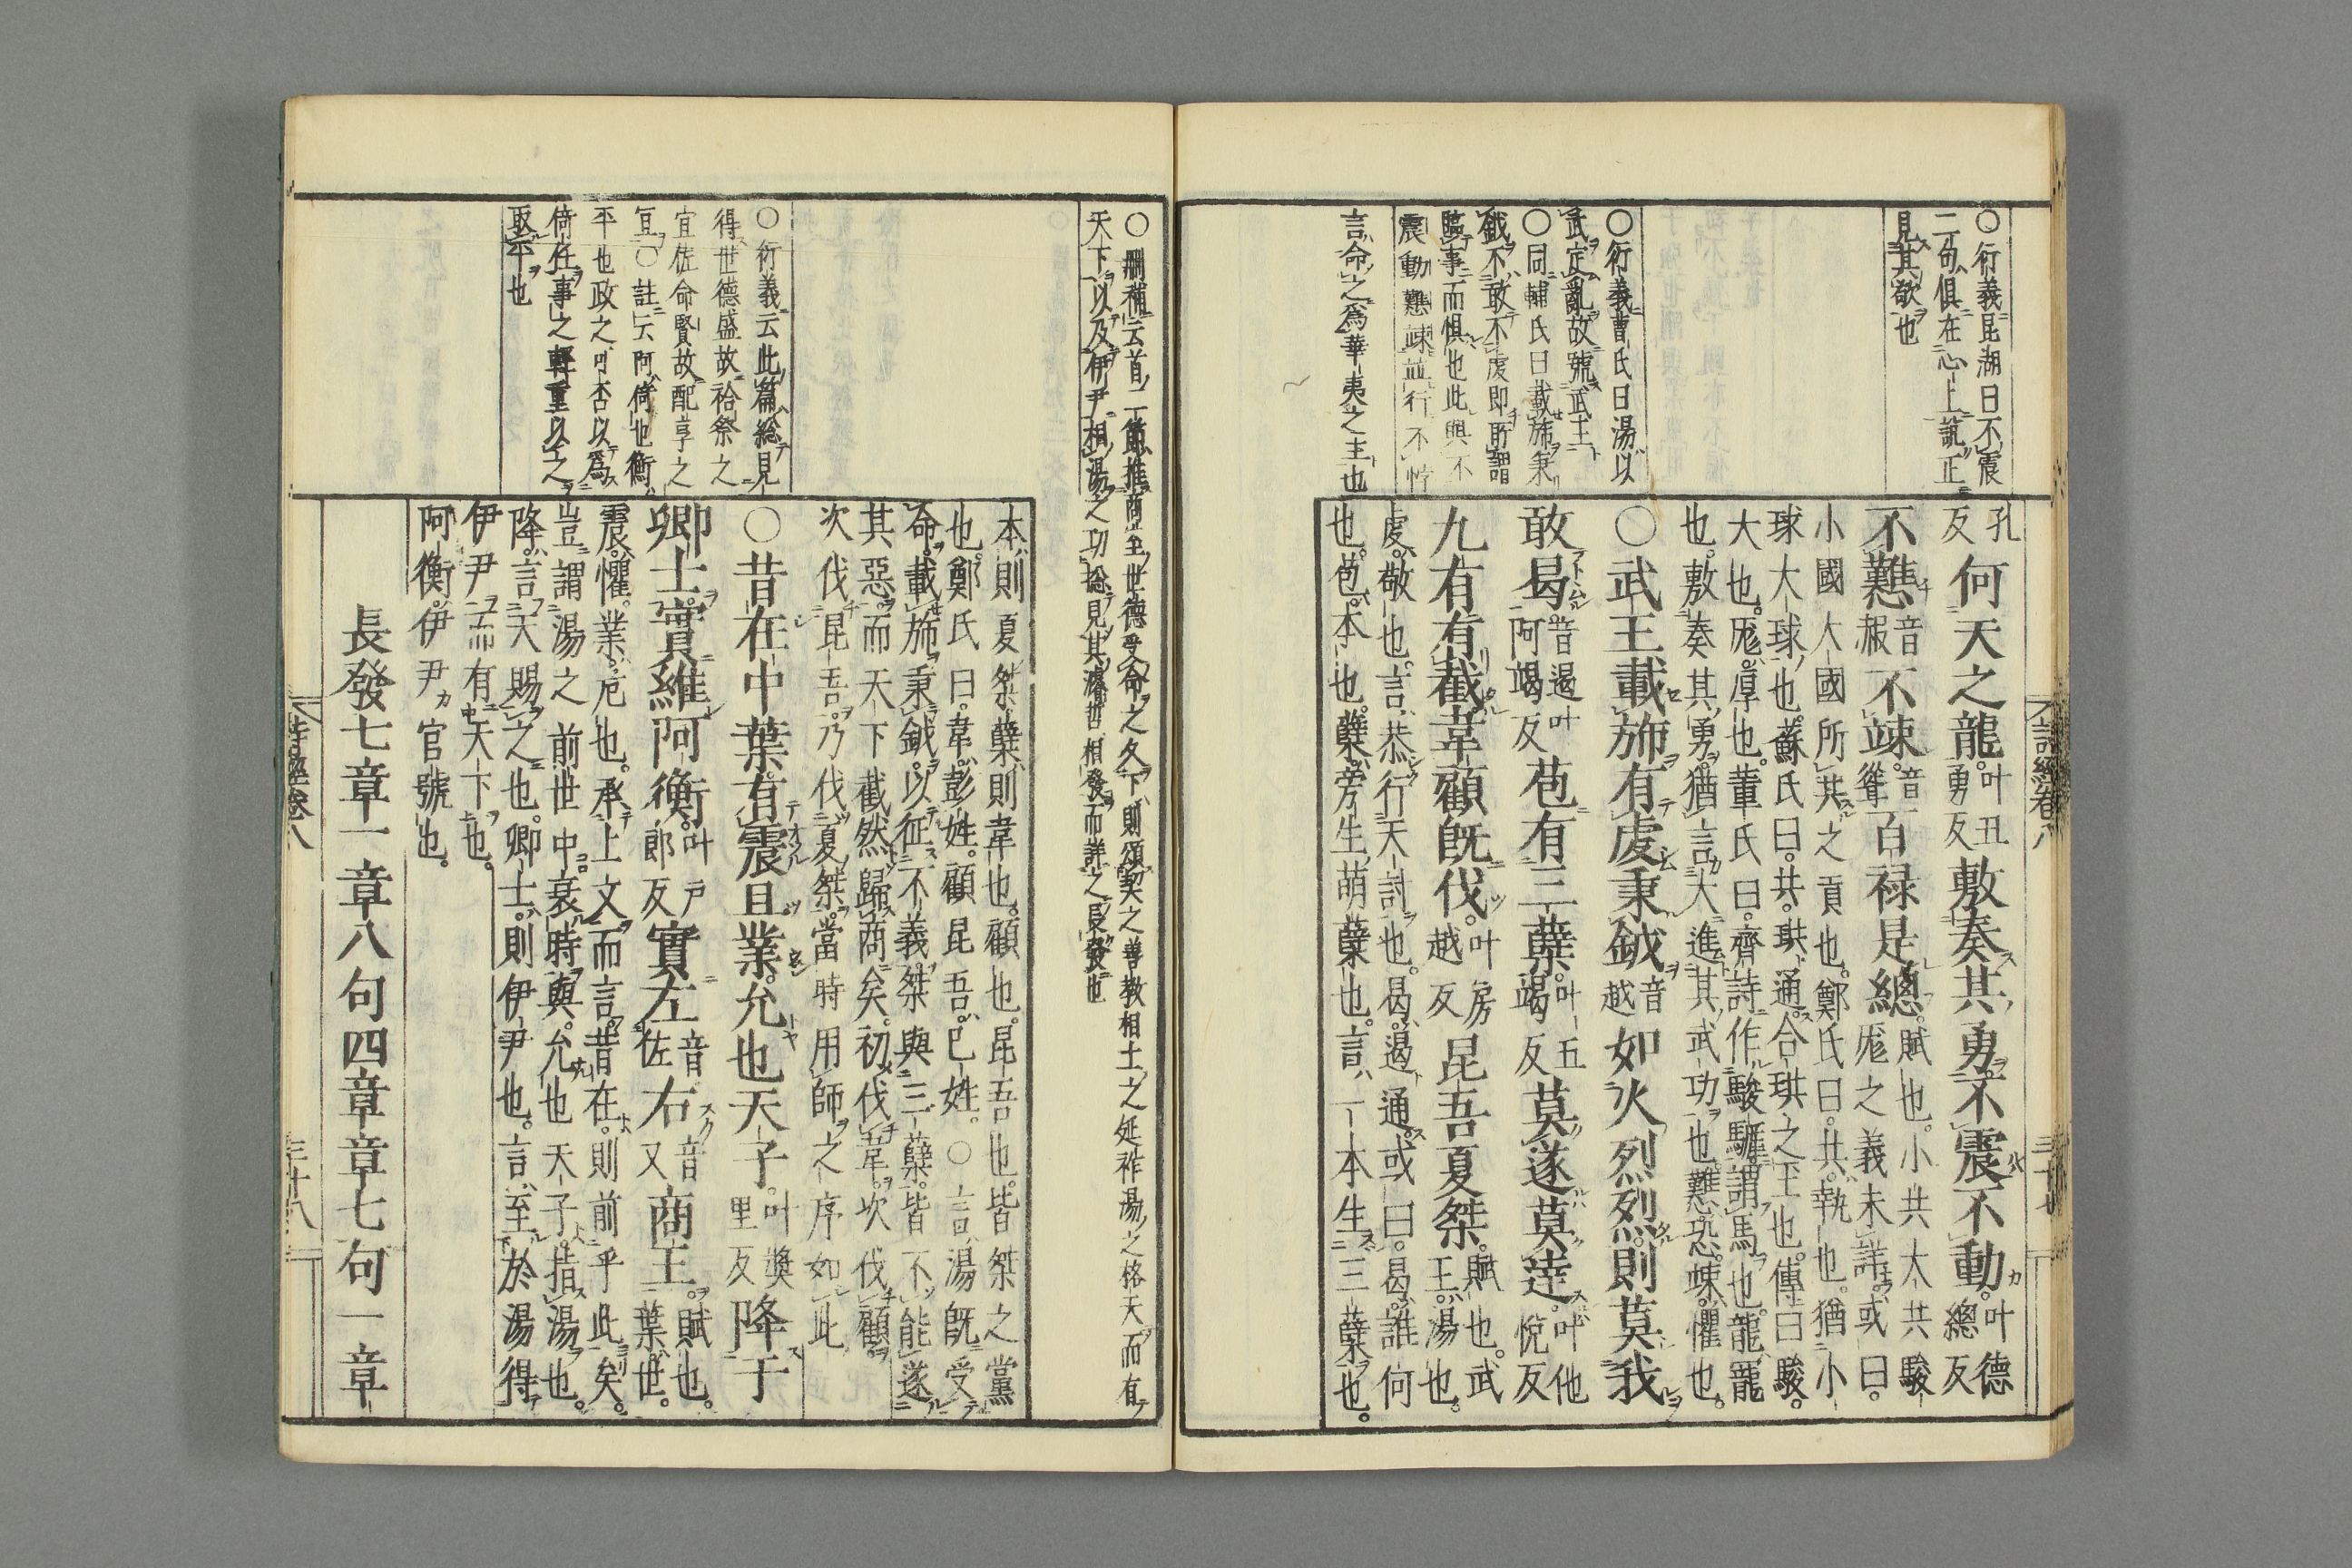 詩經卷八
三十七
○衍義昆湖曰不震
二句俱在心上說正
見其欲也
○衍義曹氏曰湯以
武定亂故號武王
○同輔氏曰載斾秉
鉞不敢不虔即所謂
臨事而懼也此與不
震動難竦並行不悖
言命之爲華夷之主也
孔反何天之龍叶丑勇反敷奏其勇不震不動叶德總反
不戁音赧不竦音聳百祿是總賦也小共大共駿厖之義未詳或曰
小國大國所共之貢也鄭氏曰共執也猶小
球大球也蘇氏曰共珙通合珙之玉也傳曰駿
大也厖厚也董氏曰齊詩作駿駹謂馬也龍寵
也敷奏其勇猶言大進其武功也戁恐竦懼也
○武王載斾有虔秉鉞音越如火烈烈則莫我
敢曷音遏叶阿竭反苞有三蘖叶五竭反莫遂莫達叶他悅反
九有有截韋顧既伐叶房越反昆吾夏桀賦也武王湯也
虔敬也言恭行天討也曷遏通或曰曷誰何
也苞本也蘖旁生萌蘖也言一本生三蘖也
○刪補云首二節推商王世德受命之久下則頌契之善教相土之延祚湯之格天而有
天下以及伊尹相湯之功總見其濬哲相發而詳之長發也
○衍義云此篇總見
得世德盛故祫祭之
宜佐命賢故配享之
宜○註云阿倚也衡
平也政之可否以爲
倚任事之輕重以之
取平也
本則夏桀蘖則韋也顧也昆吾也皆桀之黨
也鄭氏曰韋彭姓顧昆吾已姓○言湯既受
命載斾秉鉞以征不義桀與三蘖皆不能遂
其惡而天下截然歸商矣初伐韋次伐顧
次伐昆吾乃伐夏桀當時用師之序如此
○昔在中葉有震且業允也天子叶獎里反降于
卿士實維阿衡叶戶郎反實左音佐右音又商王賦也葉世
震懼業危也承上文而言昔在則前乎此矣
豈謂湯之前世中衰時與允也天子指湯也
降言天賜之也卿士則伊尹也言至於湯得
伊尹而有天下也
阿衡伊尹官號也
長發七章一章八句四章章七句一章
詩經卷八
三十八